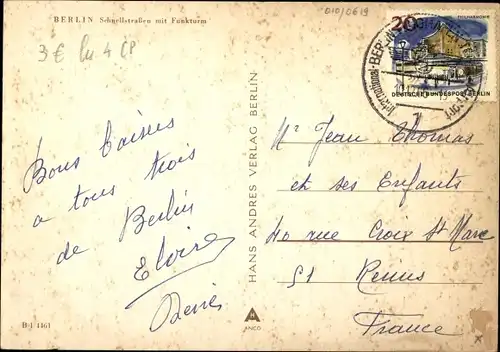 BERLIN Schnellstraßen mit Funkturm
010/0619
3 €
4 CP
PHILHARMONIE
30
DEUTSCHE BUNDESPOST BERLIN
Bons baisers
a tous trois
de Berlin
Eloire
HANS ANDRES VERLAG BERLIN
ANCO
Mr Jean Thomas
et ses Enfants
40 rue Croix St Marc
51 Reims
France
B 1 4461